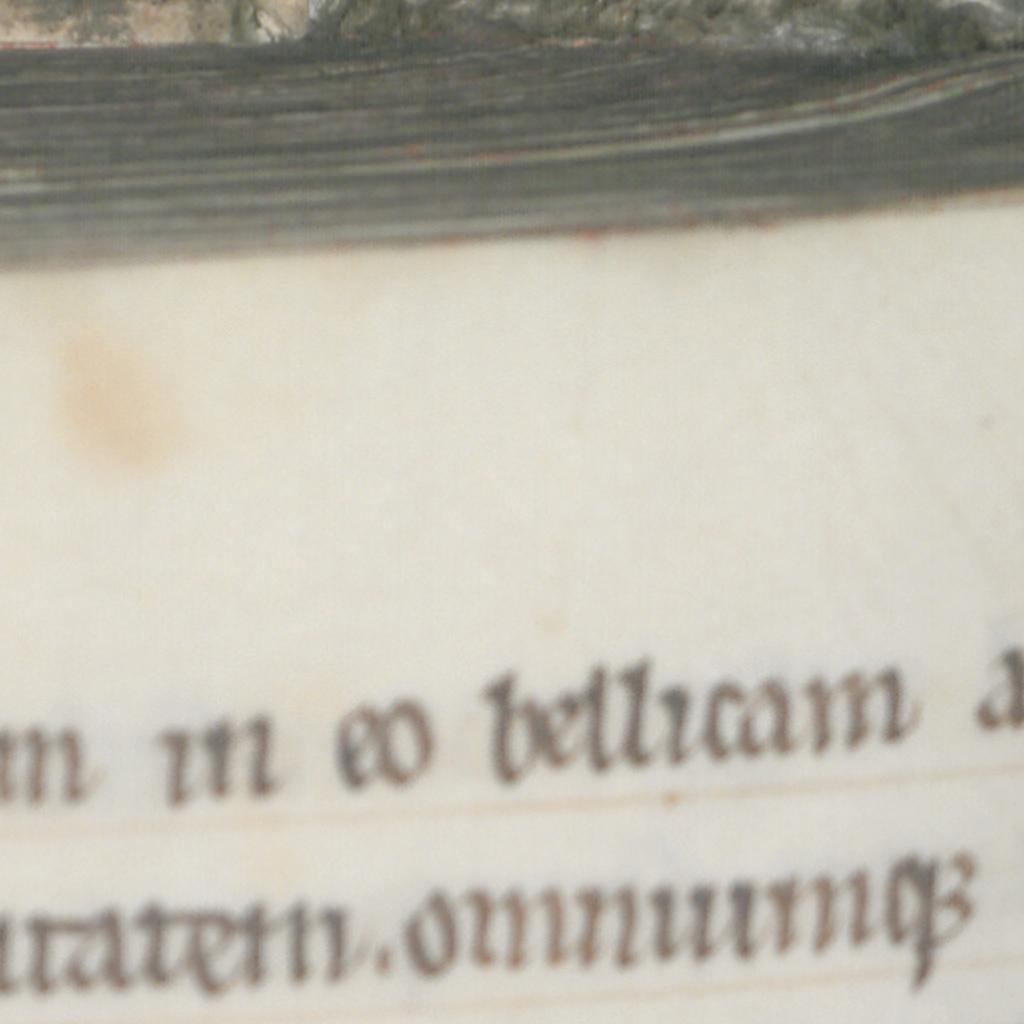 m in eo bellicam a
itatem. omniumqꝫ